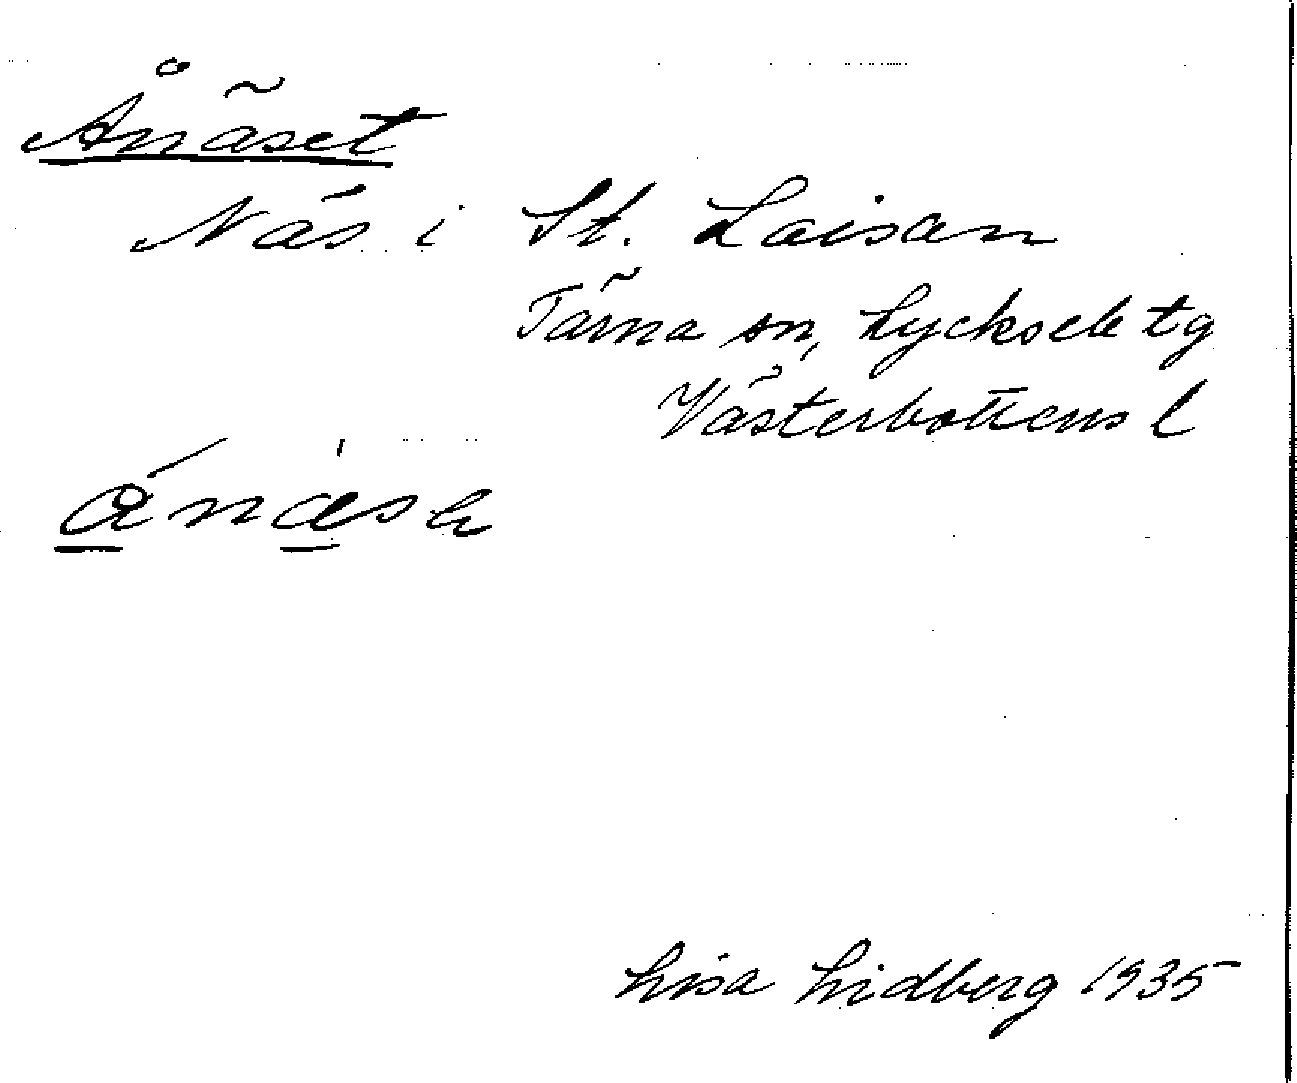 Ånäset
Näs i St. Laisan
Tärna sn, Lycksele tg
Västerbottens l
Lisa Lidberg 1935